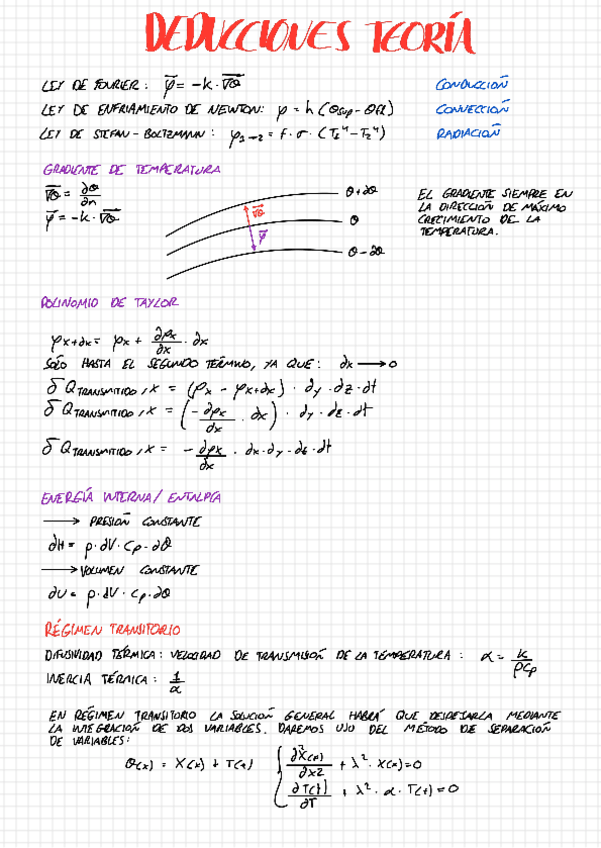 DEDUCCIONES TEORÍA
LEY DE FOURIER : φ⃗ = -k · ∇θ⃗ CONDUCCIÓN
LEY DE ENFRIAMIENTO DE NEWTON: φ = h (θsup - θfl) CONVECCIÓN
LEY DE STEFAN - BOLTZMANN : φ1→2 = f · σ · (T1⁴ - T2⁴) RADIACIÓN
GRADIENTE DE TEMPERATURA
∇θ⃗ = ∂θ/∂n
φ⃗ = -k · ∇θ⃗
θ + ∂θ
∇θ⃗
θ
φ⃗
θ - ∂θ
EL GRADIENTE SIEMPRE EN
LA DIRECCIÓN DE MÁXIMO
CRECIMIENTO DE LA
TEMPERATURA.
POLINOMIO DE TAYLOR
φx+dx = φx + ∂φx/∂x · dx
SOLO HASTA EL SEGUNDO TÉRMINO, YA QUE : dx → 0
δ Q TRANSMITIDO, X = (φx - φx+dx) · dy · dz · dt
δ Q TRANSMITIDO, X = (- ∂φx/∂x · dx) · dy · dz · dt
δ Q TRANSMITIDO, X = - ∂φx/∂x · dx · dy · dz · dt
ENERGÍA INTERNA / ENTALPÍA
→ PRESIÓN CONSTANTE
∂H = ρ · dV · Cp · ∂θ
→ VOLUMEN CONSTANTE
∂U = ρ · dV · Cp · ∂θ
RÉGIMEN TRANSITORIO
DIFUSIVIDAD TÉRMICA : VELOCIDAD DE TRANSMISIÓN DE LA TEMPERATURA : α = k/ρCp
INERCIA TÉRMICA : 1/α
EN RÉGIMEN TRANSITORIO LA SOLUCIÓN GENERAL HABRÁ QUE DESPEJARLA MEDIANTE
LA INTEGRACIÓN DE DOS VARIABLES. DAREMOS USO DEL MÉTODO DE SEPARACIÓN
DE VARIABLES :
θ(x) = X(x) + T(t) { ∂²X(x)/∂x2 + λ² · X(x) = 0
∂T(t)/∂T + λ² · α · T(t) = 0